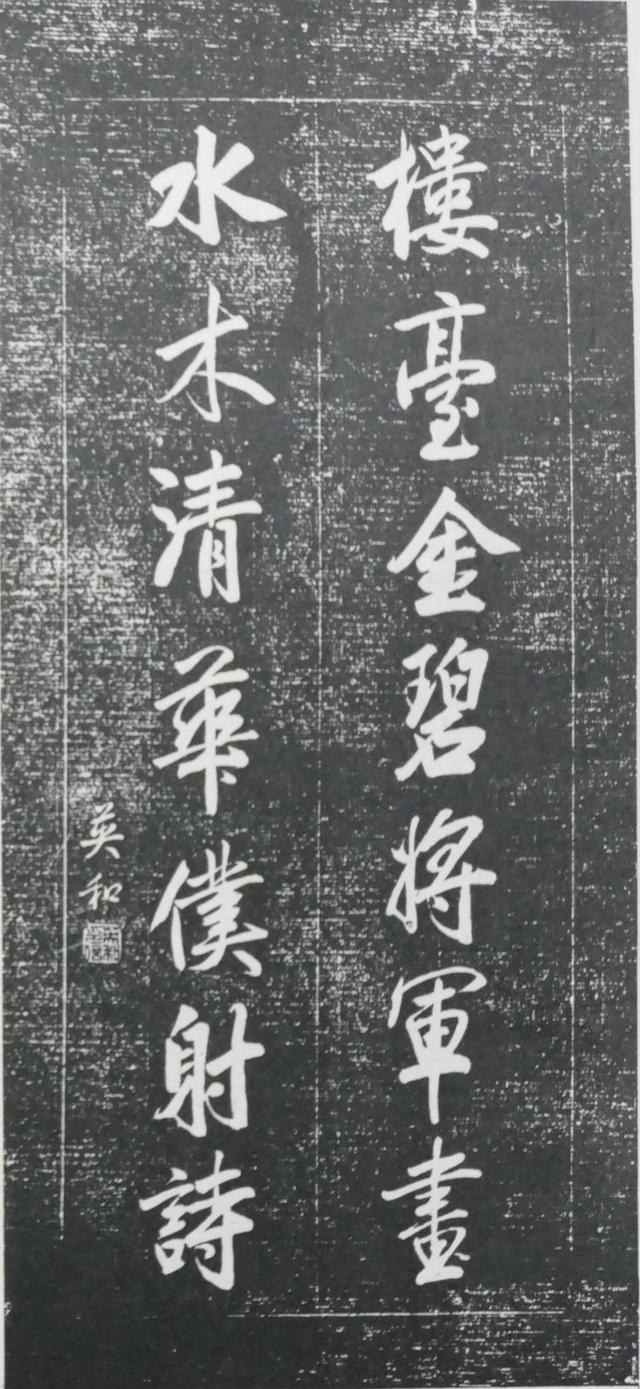 樓臺金碧將軍畫
水木清華僕射詩
英和